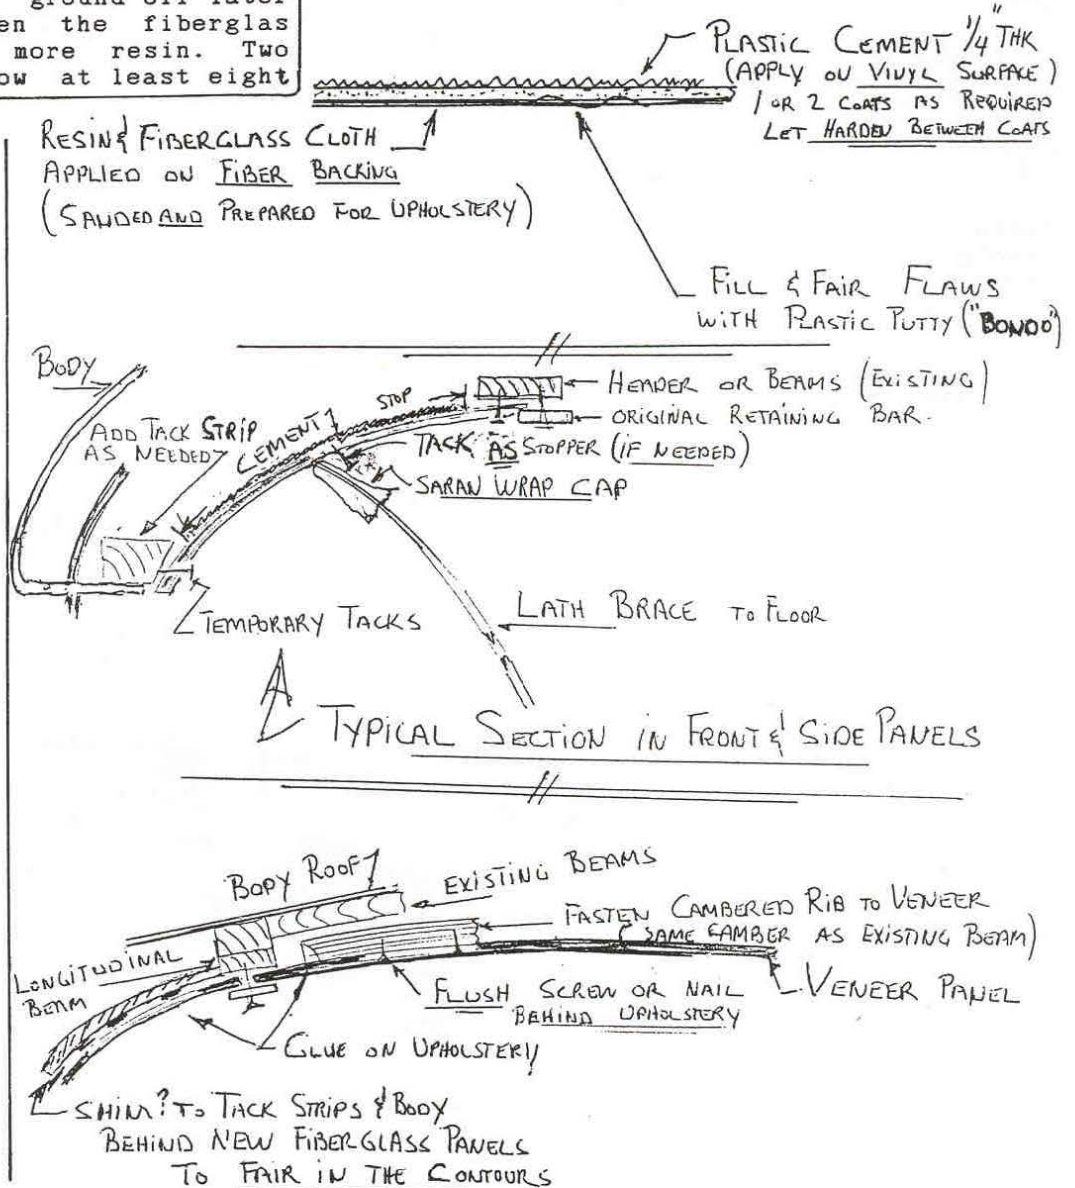 ground off later
en the fiberglas
more resin. Two
ow at least eight
PLASTIC CEMENT 1/4" THK
(APPLY ON VINYL SURFACE)
1 OR 2 COATS AS REQUIRED
LET HARDEN BETWEEN COATS
RESIN & FIBERGLASS CLOTH
APPLIED ON FIBER BACKING
(SANDED AND PREPARED FOR UPHOLSTERY)
FILL & FAIR FLAWS
WITH PLASTIC PUTTY ("BONDO")
BODY
STOP
HEADER OR BEAMS (EXISTING)
ORIGINAL RETAINING BAR.
ADD TACK STRIP
AS NEEDED
CEMENT
TACK AS STOPPER (IF NEEDED)
SARAN WRAP CAP
LATH BRACE TO FLOOR
TEMPORARY TACKS
TYPICAL SECTION IN FRONT & SIDE PANELS
BODY ROOF
EXISTING BEAMS
FASTEN CAMBERED RIB TO VENEER
SAME CAMBER AS EXISTING BEAM)
LONGITUDINAL
BEAM
FLUSH SCREW OR NAIL
BEHIND UPHOLSTERY
VENEER PANEL
GLUE ON UPHOLSTERY
SHIM? TO TACK STRIPS & BODY
BEHIND NEW FIBERGLASS PANELS
TO FAIR IN THE CONTOURS